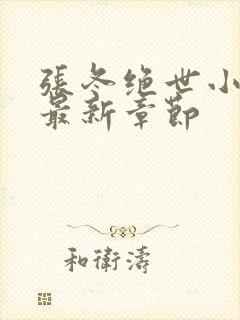 張冬绝世小
最新章節
和衛濤